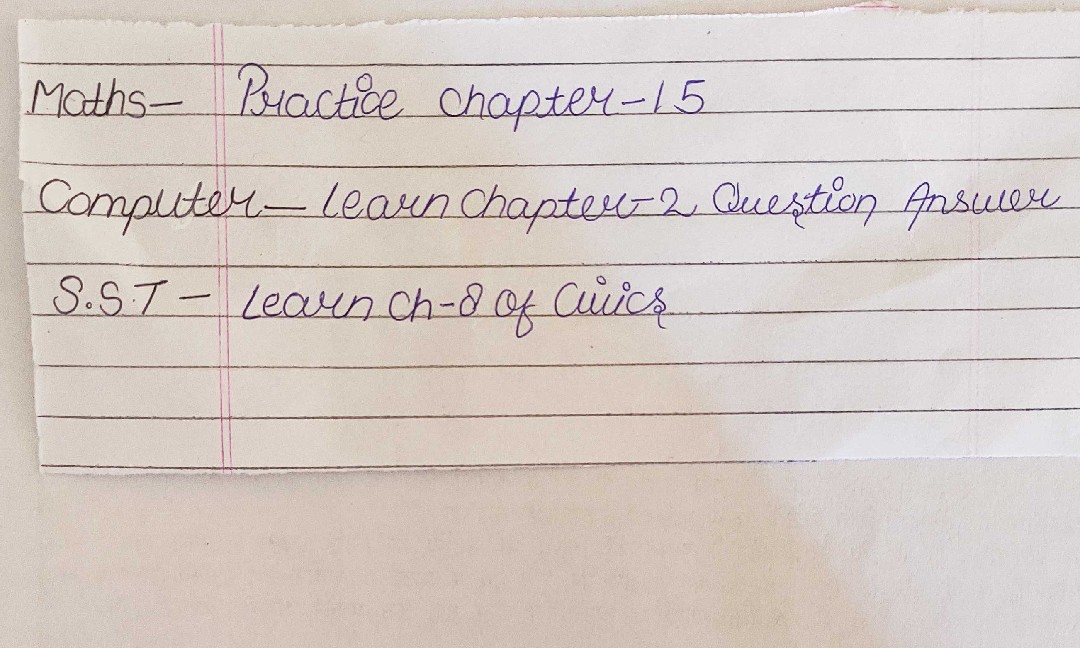 Maths- Practice chapter-15
Computer- Learn Chapter-2 Question Answer
S.S.T - Learn Ch-8 of Civics